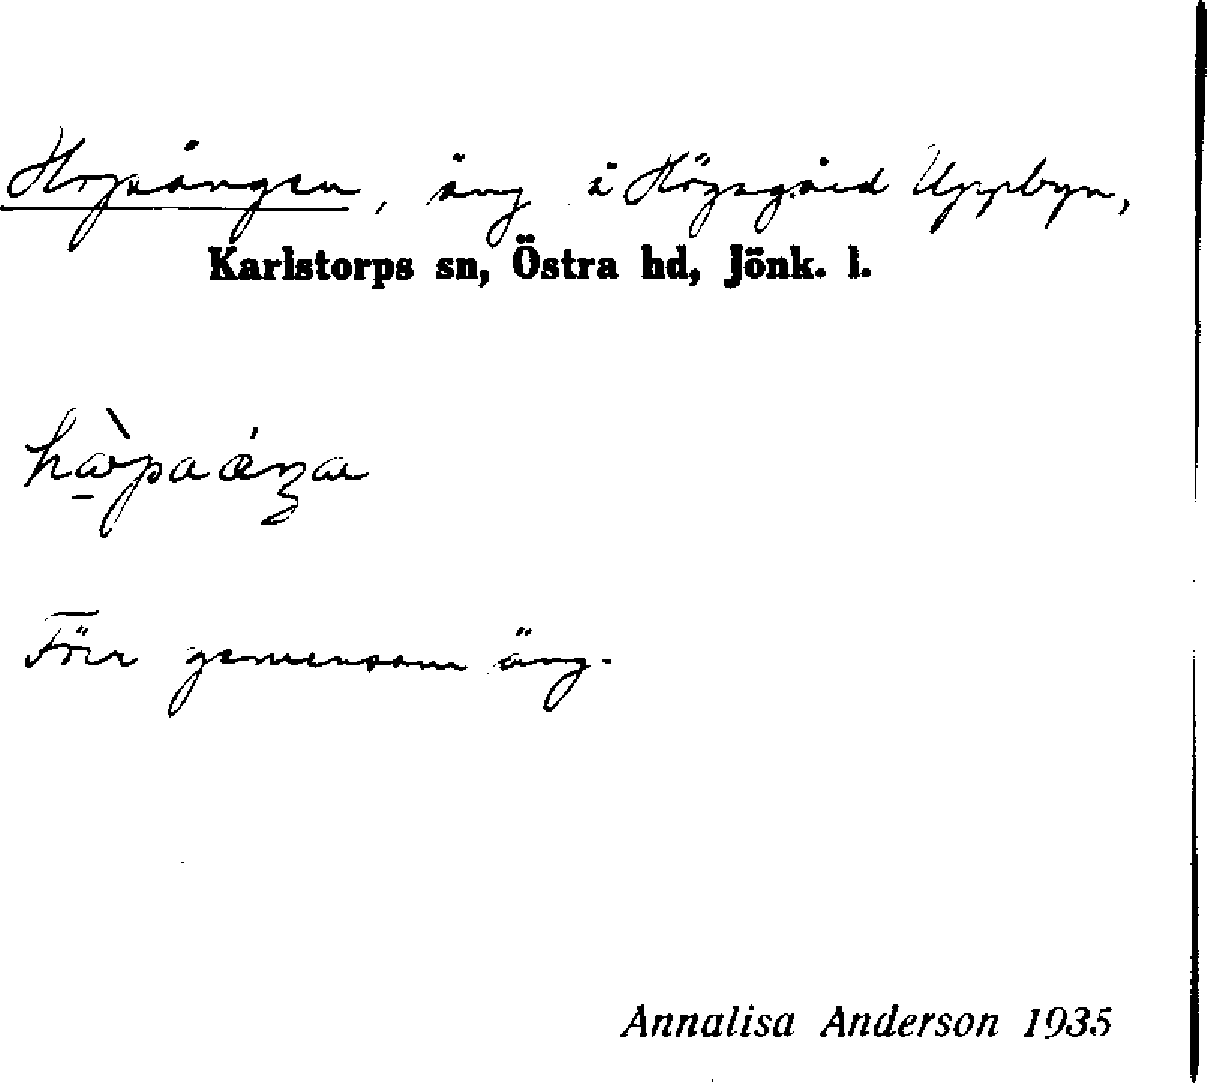 Hopaängen, äng i Högagärd Uppbyn,
Karlstorps sn, Östra hd, Jönk. l.
Förr gemensam äng.
Annalisa Anderson 1935